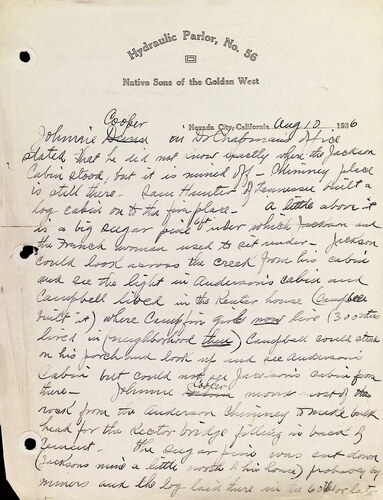 Hydraulic Parlor, No. 56
Native Sons of the Golden West
Nevada City, California Aug 10 1936
Cooper
Johnnie on Dr Chapmans Office
stated that he did not now exactly where the Jackson
Cabin stood, but it is mined off - Chimney place
is still there. Sam Hunter of Tennessee built a
log cabin on to the fireplace - A little above it
is a big sugar pine which Jackson and
the French women used to set under - Jackson
could look across the creek from his cabin
and see the light in Anderson's cabin and
Campbell lived in the house (Campbell
built it) where girls now live (3 others
lived in (neighborhood then) Campbell could stand
on his porch and look up and see Anderson's
Cabin but could not see Jackson's cabin from
there - Johnnie Cooper moved most of the
rock from the Anderson Chimney to made bulk
head for the Rector bridge filling in back of
The sugar pine was cut down
(Jacksons mine a little north of his house) probably by
miners and the log laid there in the